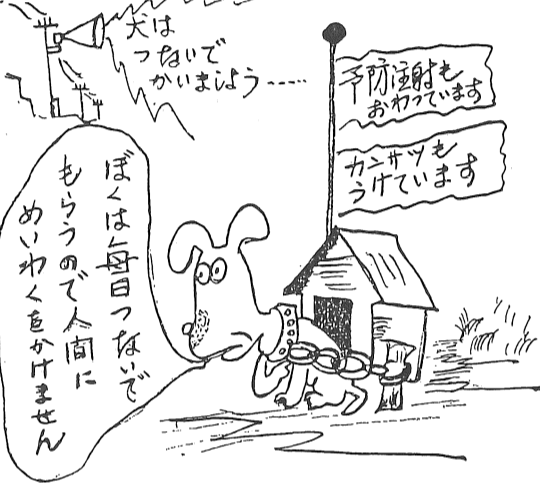 犬は
つないで
かいましょう……
予防注射も
おわっています
カンサツも
うけています
ぼくは毎日つないで
もらうので人間に
めいわくをかけません